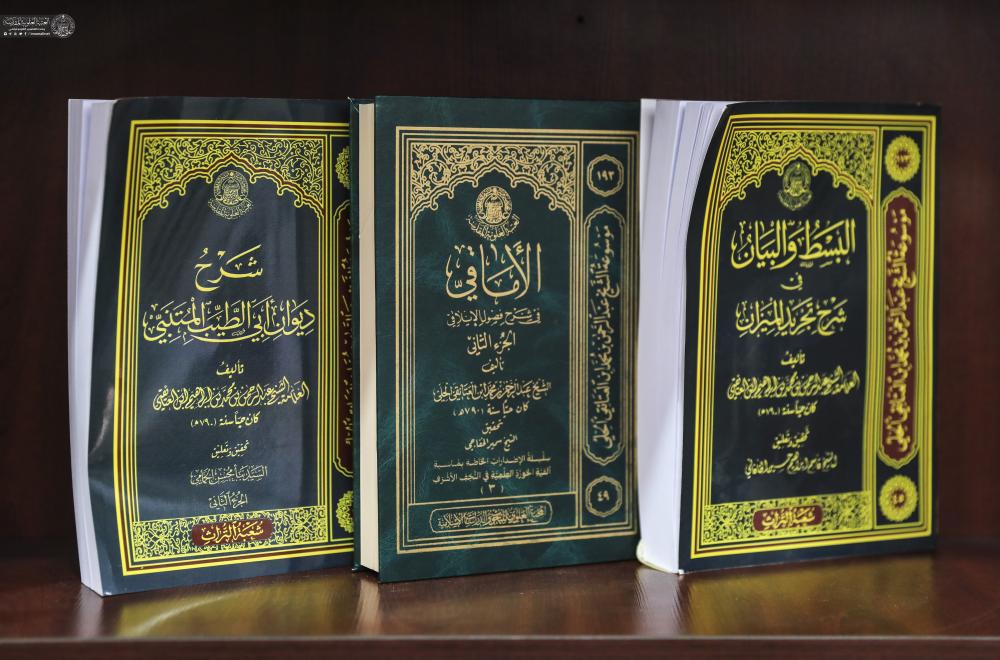 العتبة العلوية المقدسة
شرح
ديوان أبي الطيب المتنبي
تأليف
العلامة الشيخ عبد الرحمن بن محمد بن إبراهيم ابن العتائقي
كان حياً سنة (٧٩٠هـ)
تحقيق وتعليق
الجزء الثاني
شعبة التراث
العتبة العلوية المقدسة
الأماقي
في شرح فصول الإيلاقي
الجزء الثاني
تأليف
الشيخ عبد الرحمن بن محمد ابن العتائقي الحلي
كان حياً سنة (٧٩٠هـ)
تحقيق
الشيخ سمير الخفاجي
سلسلة الإصدارات الخاصة بمناسبة
ألفية الحوزة العلمية في النجف الأشرف
(٣)
١٩٣
موسوعة الشيخ عبد الرحمن بن محمد ابن العتائقي الحلي
٤٩
البسط والبيان
في
شرح تجريد الميزان
تأليف
العلامة الشيخ عبد الرحمن بن محمد بن إبراهيم ابن العتائقي
كان حياً سنة (٧٩٠هـ)
تحقيق وتعليق
شعبة التراث
موسوعة الشيخ عبد الرحمن بن محمد ابن العتائقي الحلي